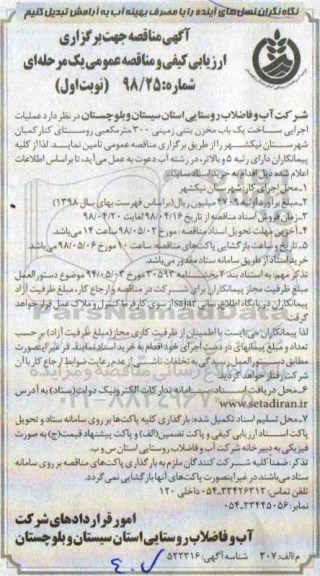 نگاه نگران نسل‌های آینده را با مصرف بهینه آب به آرامش تبدیل کنیم
آگهی مناقصه جهت برگزاری
ارزیابی کیفی و مناقصه عمومی یک مرحله‌ای
شماره: ۹۸/۲۵ (نوبت اول)
شرکت آب و فاضلاب روستایی استان سیستان و بلوچستان در نظر دارد عملیات
اجرایی ساخت یک باب مخزن بتنی زمینی ۳۰۰ مترمکعبی روستای کنارکمبان
شهرستان نیکشهر را از طریق برگزاری مناقصه عمومی تامین نماید. لذا از کلیه
پیمانکاران دارای رتبه ۵ و بالاتر، در رشته آب دعوت به عمل می‌آید، تا براساس اطلاعات
اعلام شده ذیل اقدام به خرید اسناد نمایند.
۱-محل اجرای کار: شهرستان نیکشهر
۲-مبلغ برآورد اولیه ۲۷۰۹ میلیون ریال (براساس فهرست بهای سال ۱۳۹۸)
۳-زمان فروش اسناد مناقصه از تاریخ ۹۸/۰۴/۱۶ لغایت ۹۸/۰۴/۲۰
۴-آخرین مهلت تحویل اسناد مناقصه: مورخ ۹۸/۰۵/۰۲ ساعت ۱۴ می‌باشد.
۵-تاریخ و ساعت بازگشایی پاکت‌های مناقصه: ساعت ۱۰ مورخ ۹۸/۰۵/۰۶ می‌باشد.
خرید اسناد از طریق سامانه ستاد مقدور می‌باشد.
تذکر مهم: به استناد بند ۲ بخشنامه ۳۰۵۹۳ مورخ ۹۴/۰۵/۰۳ موضوع دستورالعمل
مبلغ ظرفیت مجاز پیمانکاران برای شرکت در مناقصه و ارجاع کار، مبلغ ظرفیت آزاد
پیمانکاران در پایگاه اطلاع رسانی sajar از سوی کارفرما کنترل و ملاک عمل قرار خواهد
گرفت.
لذا پیمانکاران می‌بایست با اطمینان از ظرفیت کاری مجاز (مبلغ ظرفیت آزاد) بر حسب
تعداد و مبلغ پیمانهای در دست اجرای خود اقدام به خرید اسناد نمایند. در غیر اینصورت
مطابق دستورالعمل رسیدگی به تخلفات ناشی از عدم رعایت ضوابط ارجاع کار با آن
شرکت رفتار خواهد گردید.
۶-محل دریافت اسناد: سامانه تدارکات الکترونیک دولت (ستاد) به آدرس
www.setadiran.ir
۷-محل تسلیم اسناد تکمیل شده: بارگذاری کلیه پاکت‌ها بر روی سامانه ستاد و تحویل
پاکت اسناد ارزیابی کیفی و پاکت تضمین (الف) و پاکت پیشنهاد قیمت (ج) به صورت
فیزیکی به دبیرخانه شرکت آب و فاضلاب روستایی استان س و ب.
تذکر: ضمنا کلیه شرکت کنندگان ملزم به بارگذاری پاکت‌های مناقصه بر روی سامانه
ستاد می‌باشند در غیر اینصورت پاکت‌های آنها بازگشایی نمی‌گردد.
تلفن تماس: ۳۳۴۲۶۳۱۲-۰۵۴ داخلی ۱۲۰
نمابر: ۳۳۴۴۵۰۵۶-۰۵۴
امور قراردادهای شرکت
آب و فاضلاب روستایی استان سیستان و بلوچستان
م الف: ۳۰۷ شناسه آگهی: ۵۲۲۳۱۶